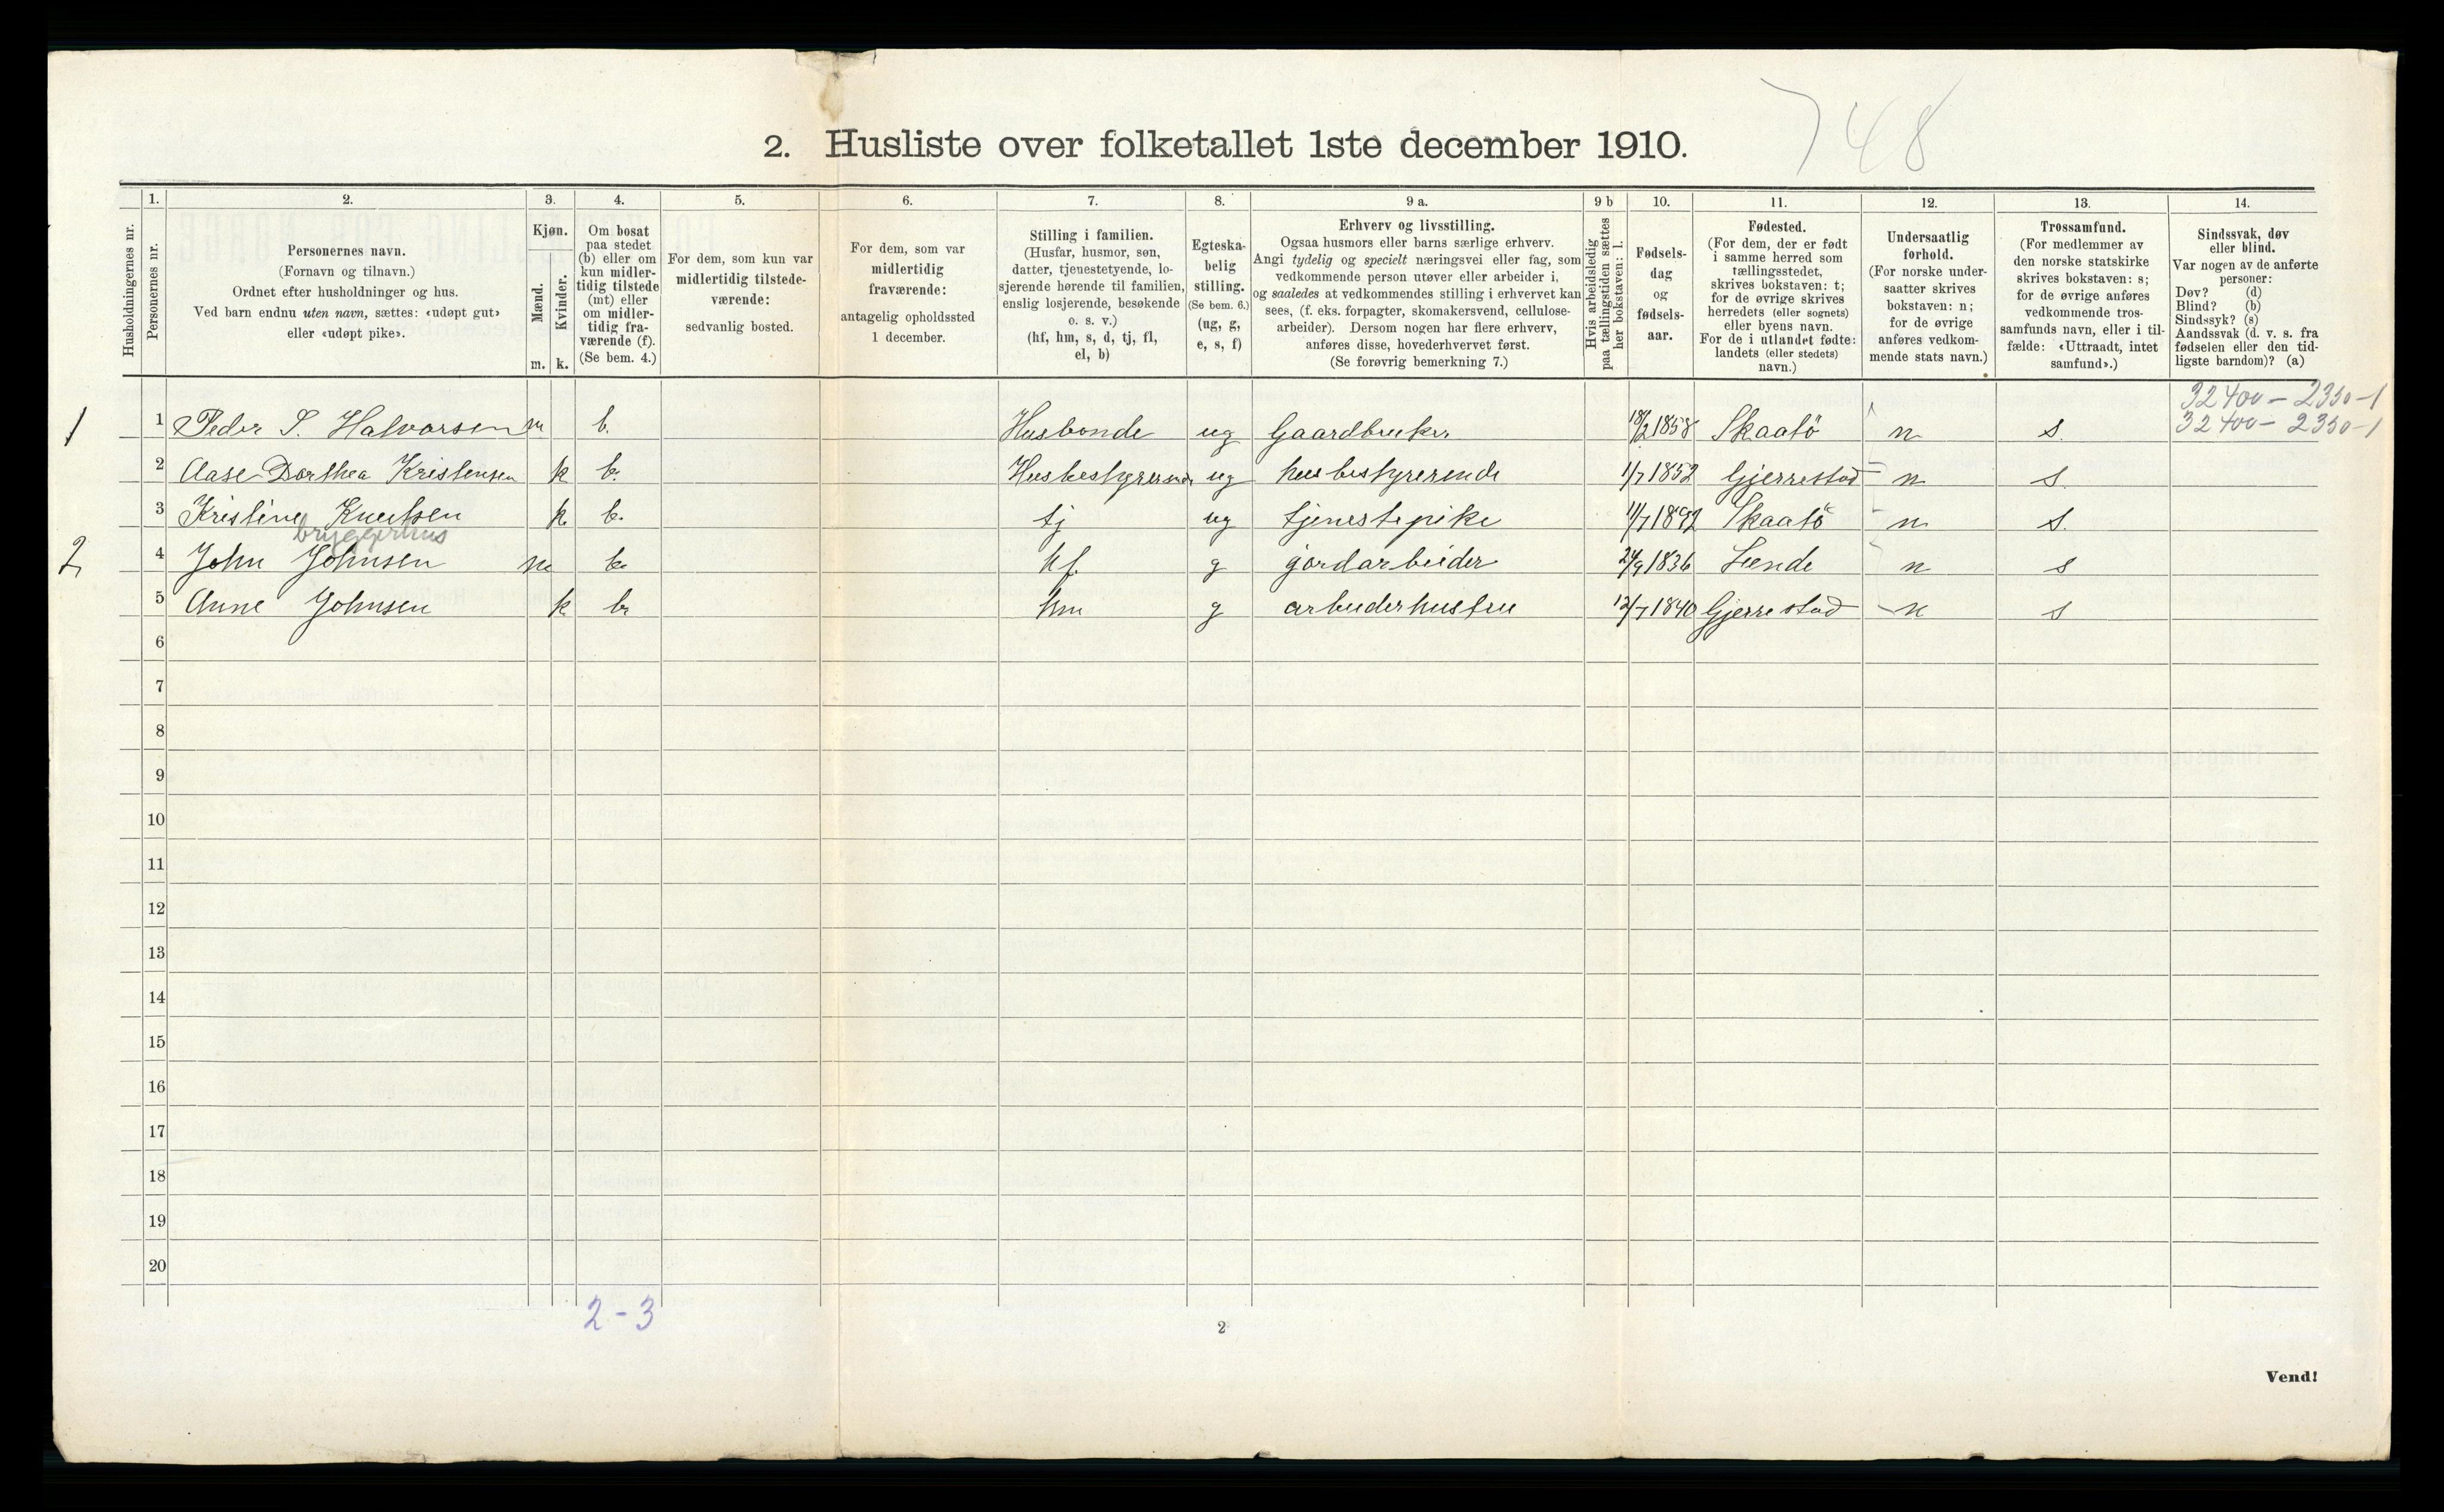 748
2. Husliste over folketallet 1ste december 1910.
Husholdningernes nr.
1. Personernes nr.
2. Personernes navn.
(Fornavn og tilnavn.)
Ordnet efter husholdninger og hus.
Ved barn endnu uten navn, sættes: «udøpt gut»
eller «udøpt pike».
3. Kjøn.
Mænd. m.
Kvinder. k.
4. Om bosat
paa stedet
(b) eller om
kun midler-
tidig tilstede
(mt) eller
om midler-
tidig fra-
værende (f).
(Se bem. 4.)
5. For dem, som kun var
midlertidig tilstede-
værende:
sedvanlig bosted.
6. For dem, som var
midlertidig
fraværende:
antagelig opholdssted
1 december.
7. Stilling i familien.
(Husfar, husmor, søn,
datter, tjenestetyende, lo-
sjerende hørende til familien,
enslig losjerende, besøkende
o. s. v.)
(hf, hm, s, d, tj, fl,
el, b)
8. Egteska-
belig
stilling.
(Se bem. 6.)
(ug, g,
e, s, f)
9 a. Erhverv og livsstilling.
Ogsaa husmors eller barns særlige erhverv.
Angi tydelig og specielt næringsvei eller fag, som
vedkommende person utøver eller arbeider i,
og saaledes at vedkommendes stilling i erhvervet kan
sees, (f. eks. forpagter, skomakersvend, cellulose-
arbeider). Dersom nogen har flere erhverv,
anføres disse, hovederhvervet først.
(Se forøvrig bemerkning 7.)
9 b Hvis arbeidsledig
paa tællingstiden sættes
her bokstaven: l.
10. Fødsels-
dag
og
fødsels-
aar.
11. Fødested.
(For dem, der er født
i samme herred som
tællingsstedet,
skrives bokstaven: t;
for de øvrige skrives
herredets (eller sognets)
eller byens navn.
For de i utlandet fødte:
landets (eller stedets)
navn.)
12. Undersaatlig
forhold.
(For norske under-
saatter skrives
bokstaven: n;
for de øvrige
anføres vedkom-
mende stats navn.)
13. Trossamfund.
(For medlemmer av
den norske statskirke
skrives bokstaven: s;
for de øvrige anføres
vedkommende tros-
samfunds navn, eller i til-
fælde: «Uttraadt, intet
samfund».)
14. Sindssvak, døv
eller blind.
Var nogen av de anførte
personer:
Døv? (d)
Blind? (b)
Sindssyk? (s)
Aandssvak (d. v. s. fra
fødselen eller den tid-
ligste barndom)? (a)
32400 – 2350–1
32400 – 2350–1
1 1 Peder S. Halvorsen m b. Husbonde ug Gaardbruker 18/2 1858 Skaatö n s.
2 Aase Dorthea Kristensen k b. Husbestyrerinde ug husbestyrerinde 1/7 1852 Gjerrestad n s.
3 Kristine Knutsen k. b. tj ug tjenestepike 11/7 1892 Skaatö n s.
bryggerhus
2 4 John Johnsen m b. hf. g jordarbeider 24/9 1836 Lunde n s
5 Anne Johnsen k b. hm g arbeiderhustru 12/7 1840 Gjerrestad n s
6
7
8
9
10
11
12
13
14
15
16
17
18
19
20
2 – 3
2
Vend!